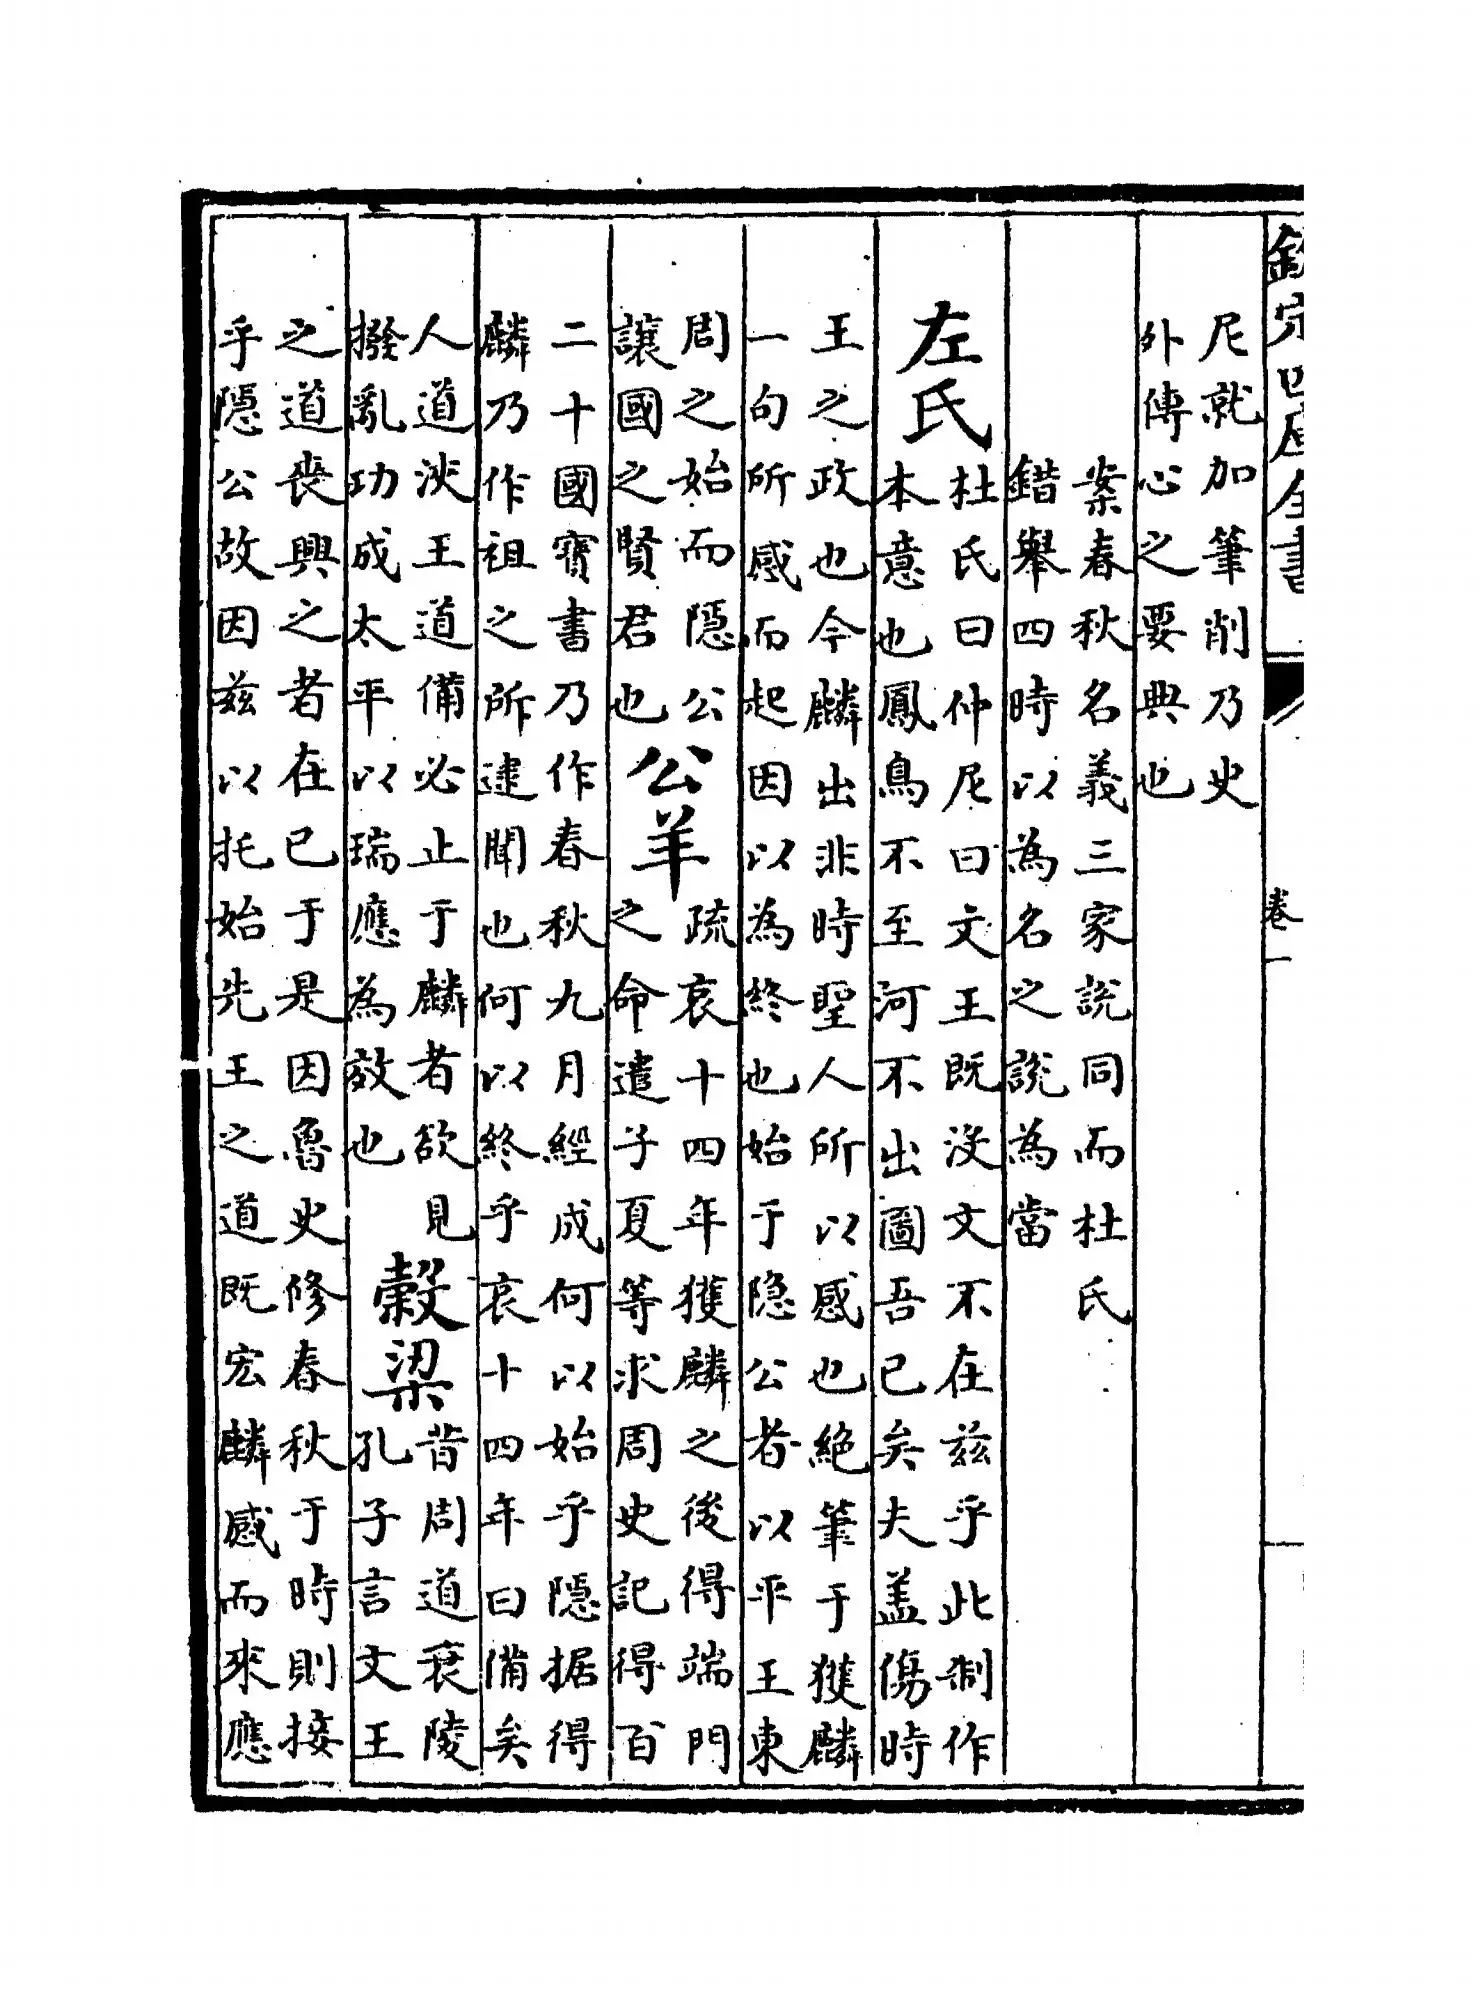 欽定四庫全書
卷一
尼就加筆削乃史
外傳心之要典也
案春秋名義三家說同而杜氏
錯舉四時以為名之說為當
左氏
杜氏曰仲尼曰文王既没文不在兹乎此制作
本意也鳳鳥不至河不出圖吾已矣夫盖傷時
王之政也今麟出非時聖人所以感也絶筆于獲麟
一句所感而起因以為終也始于隐公者以平王東
周之始而隱公
讓國之賢君也
公羊
疏哀十四年獲麟之後得端門
之命遣子夏等求周史記得百
二十國寳書乃作春秋九月經成何以始乎隱据得
麟乃作祖之所逮聞也何以終乎哀十四年曰備矣
人道浹王道備必止于麟者欲見
撥亂功成太平以瑞應為效也
榖梁
昔周道衰陵
孔子言文王
之道喪興之者在已于是因魯史修春秋于時則接
乎隠公故因兹以托始先王之道既宏麟感而來應